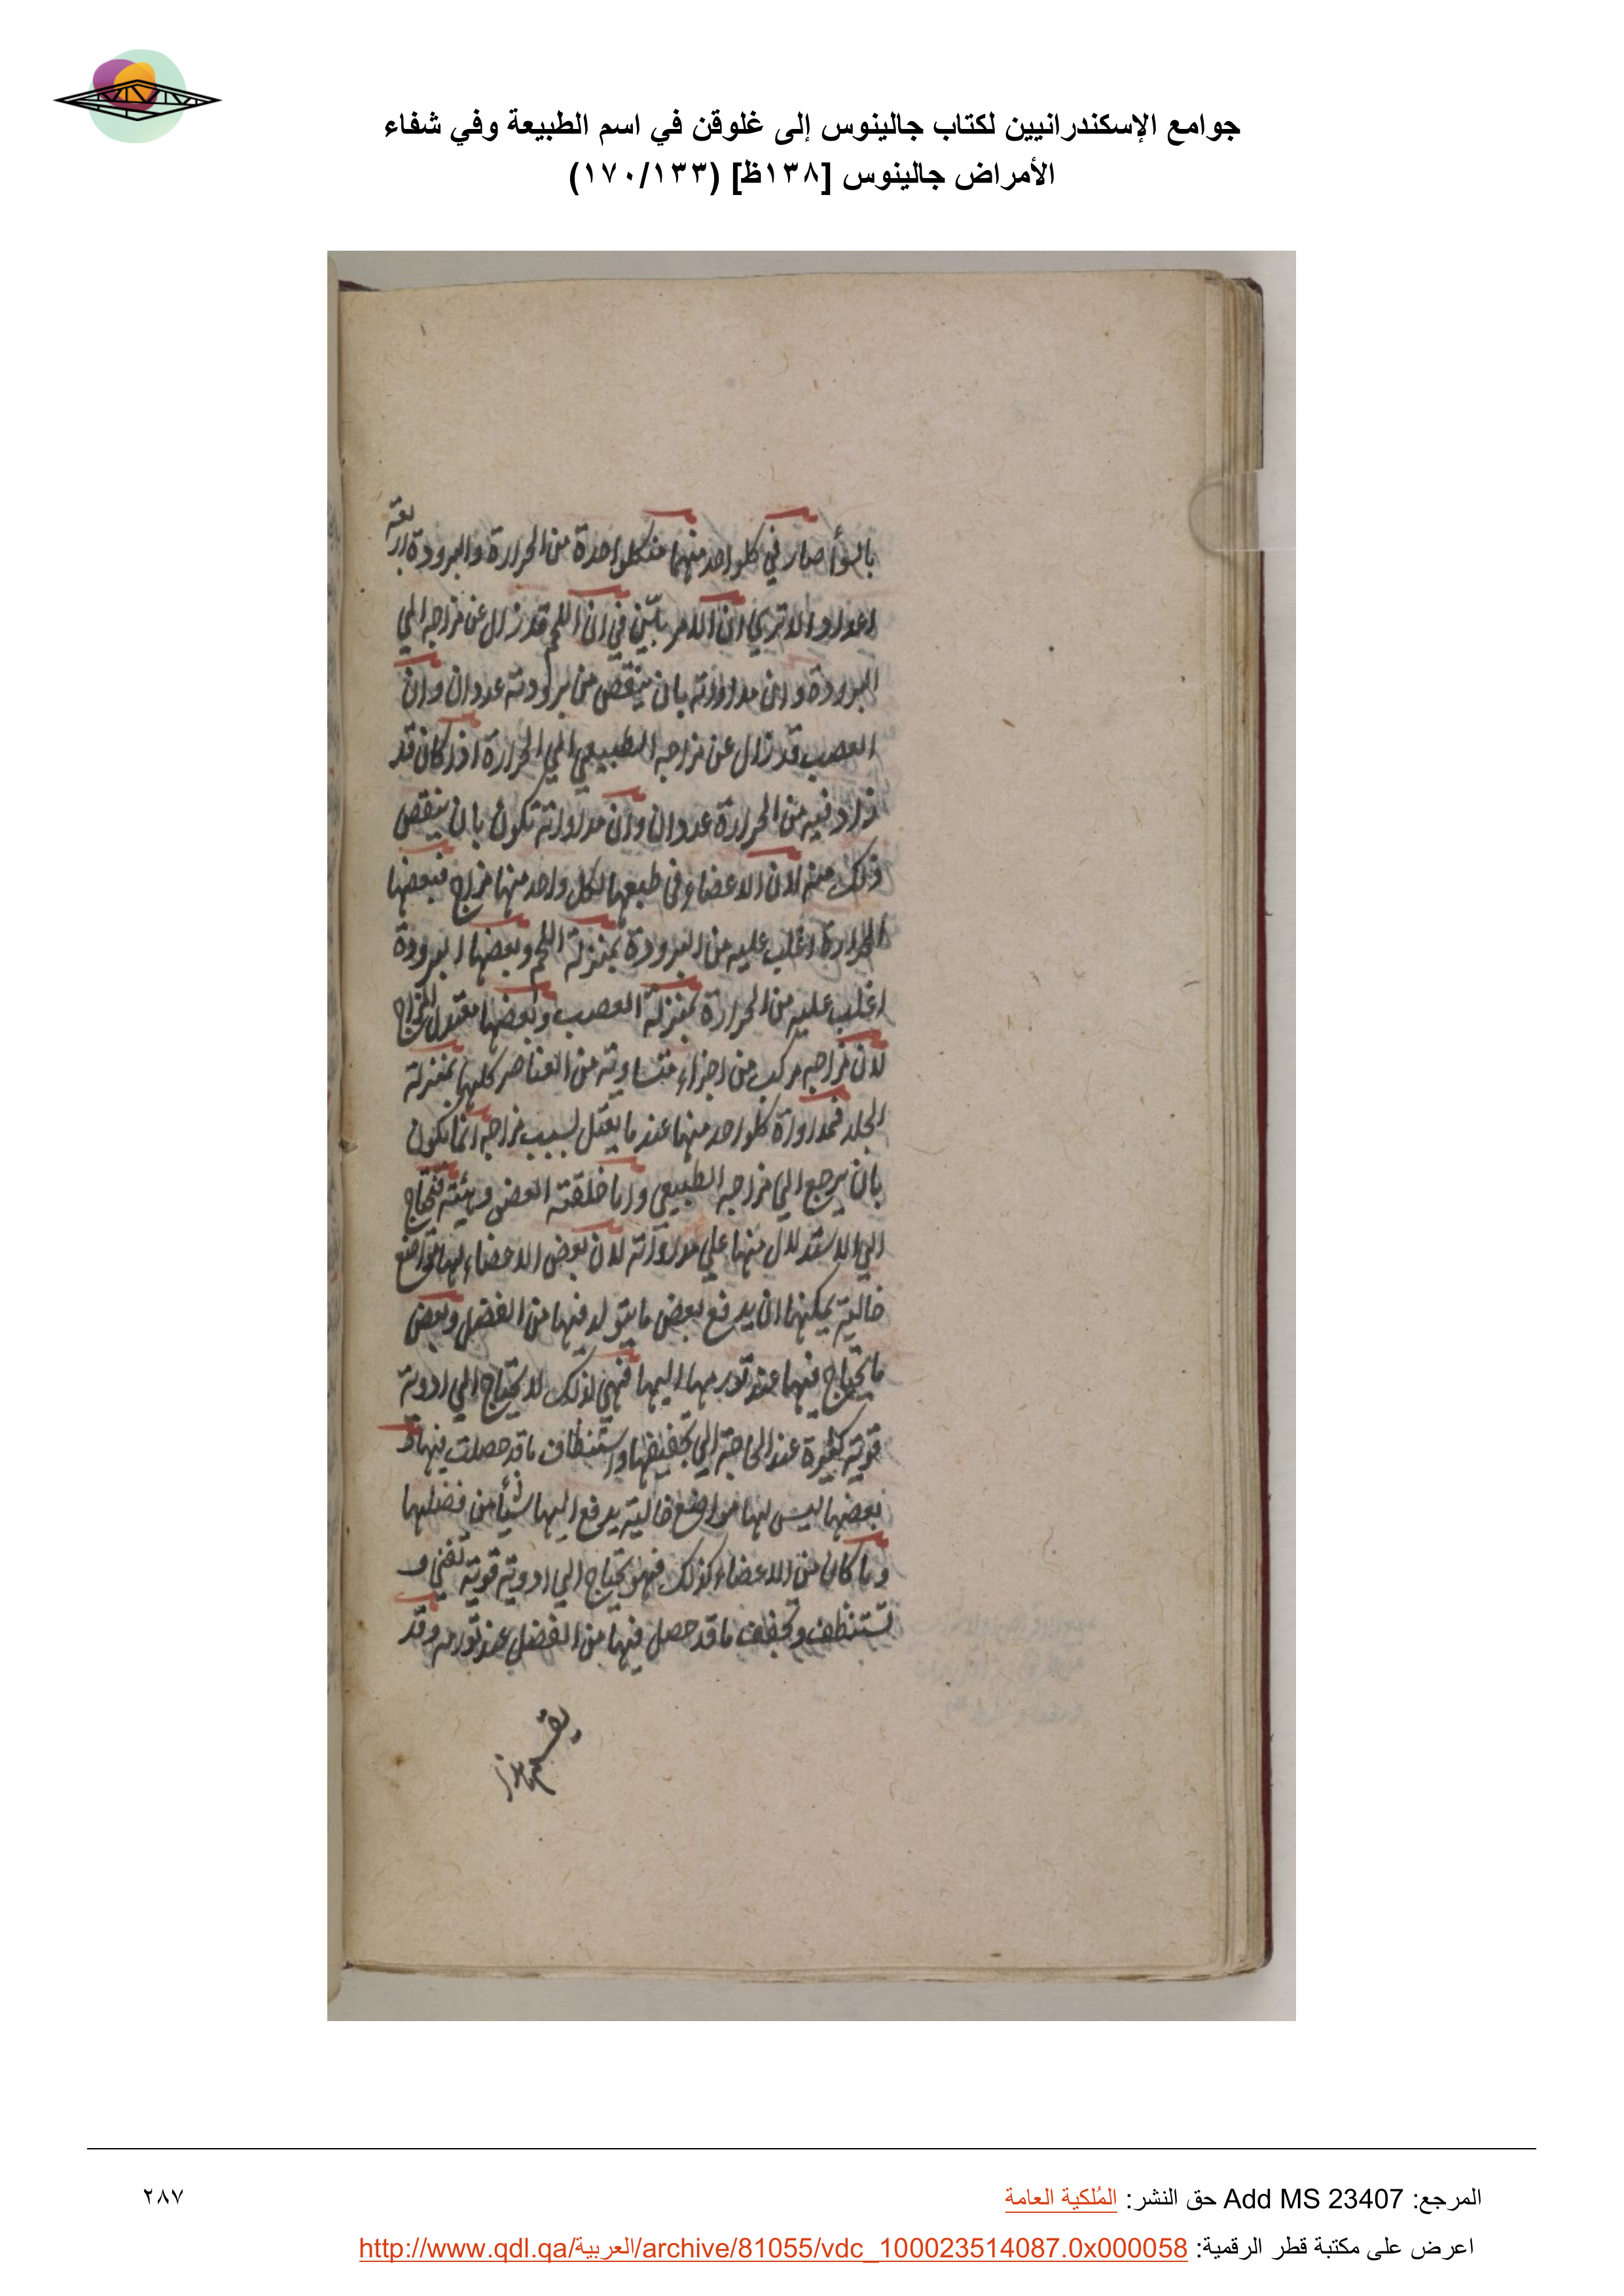 جوامع الإسكندرانيين لكتاب جالينوس إلى غلوقن في اسم الطبيعة وفي شفاء
الأمراض جالينوس [١٣٨ظ] (١٧٠/١٣٣)
بالسوأ صار في كلواحد منهما من كلواحدة من الحرارة والبرودة اربعة
اعداد والا تري ان الامر بيّن في ان اللحم قد زال عن مزاجه الي
البرودة وان مداواته بان ينقص من برودته عددان وان
العصب قد زال عن مزاجه الطبيعي الي الحرارة اذ كان قد
زاد فيه من الحرارة عددان وان مداواته تكون بان ينقص
ذلك منه لان الاعضاء في طبعها لكل واحد منها مزاج فبعضها
الحرارة اغلب عليه من البرودة بمنزلة اللحم وبعضها البرودة
اغلب عليه من الحرارة بمنزلة العصب وبعضها المزاج
لان مزاجه مركب من اجزاء متساوية من العناصر كلها بمنزلة
الجلد فمداواة كلواحد منها عند ما يعتل لسبب مزاجه انما يكون
بان يرجع الي مزاجه الطبيعي واما خلقته العضو وهيئته فتحتاج
الي الاستدلال منها علي مداواته لان بعض الاعضاء لها مواضع
خالية يمكنها ان يدفع بعض ما يتولد فيها من الفضل وبعض
ما يحتاج فيها عند تورمها اليها فهي لذلك لا يحتاج الي ادوية
قوية كثيرة عند الحاجة الي تجفيفها واستنظاف ما قد حصلت فيها و
بعضها ليس لها مواضع خالية يدفع اليها شيأ من فضلها
وما كان من الاعضاء كذلك فهو يحتاج الي ادوية قوية تفني و
تستنظف وتجفف ما قد حصل فيها من الفضل عند تورمه وقد
المرجع: Add MS 23407 حق النشر: المُلكية العامة
٢٨٧
اعرض على مكتبة قطر الرقمية: http://www.qdl.qa/العربية/archive/81055/vdc_100023514087.0x000058